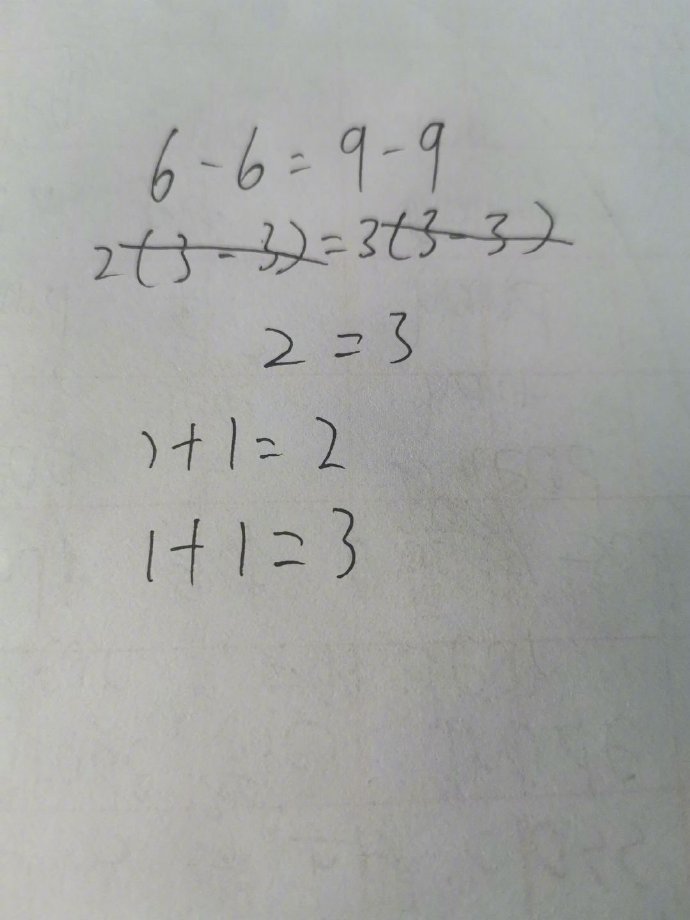 6 - 6 = 9 - 9
2(3 - 3) = 3(3 - 3)
2 = 3
1 + 1 = 2
1 + 1 = 3